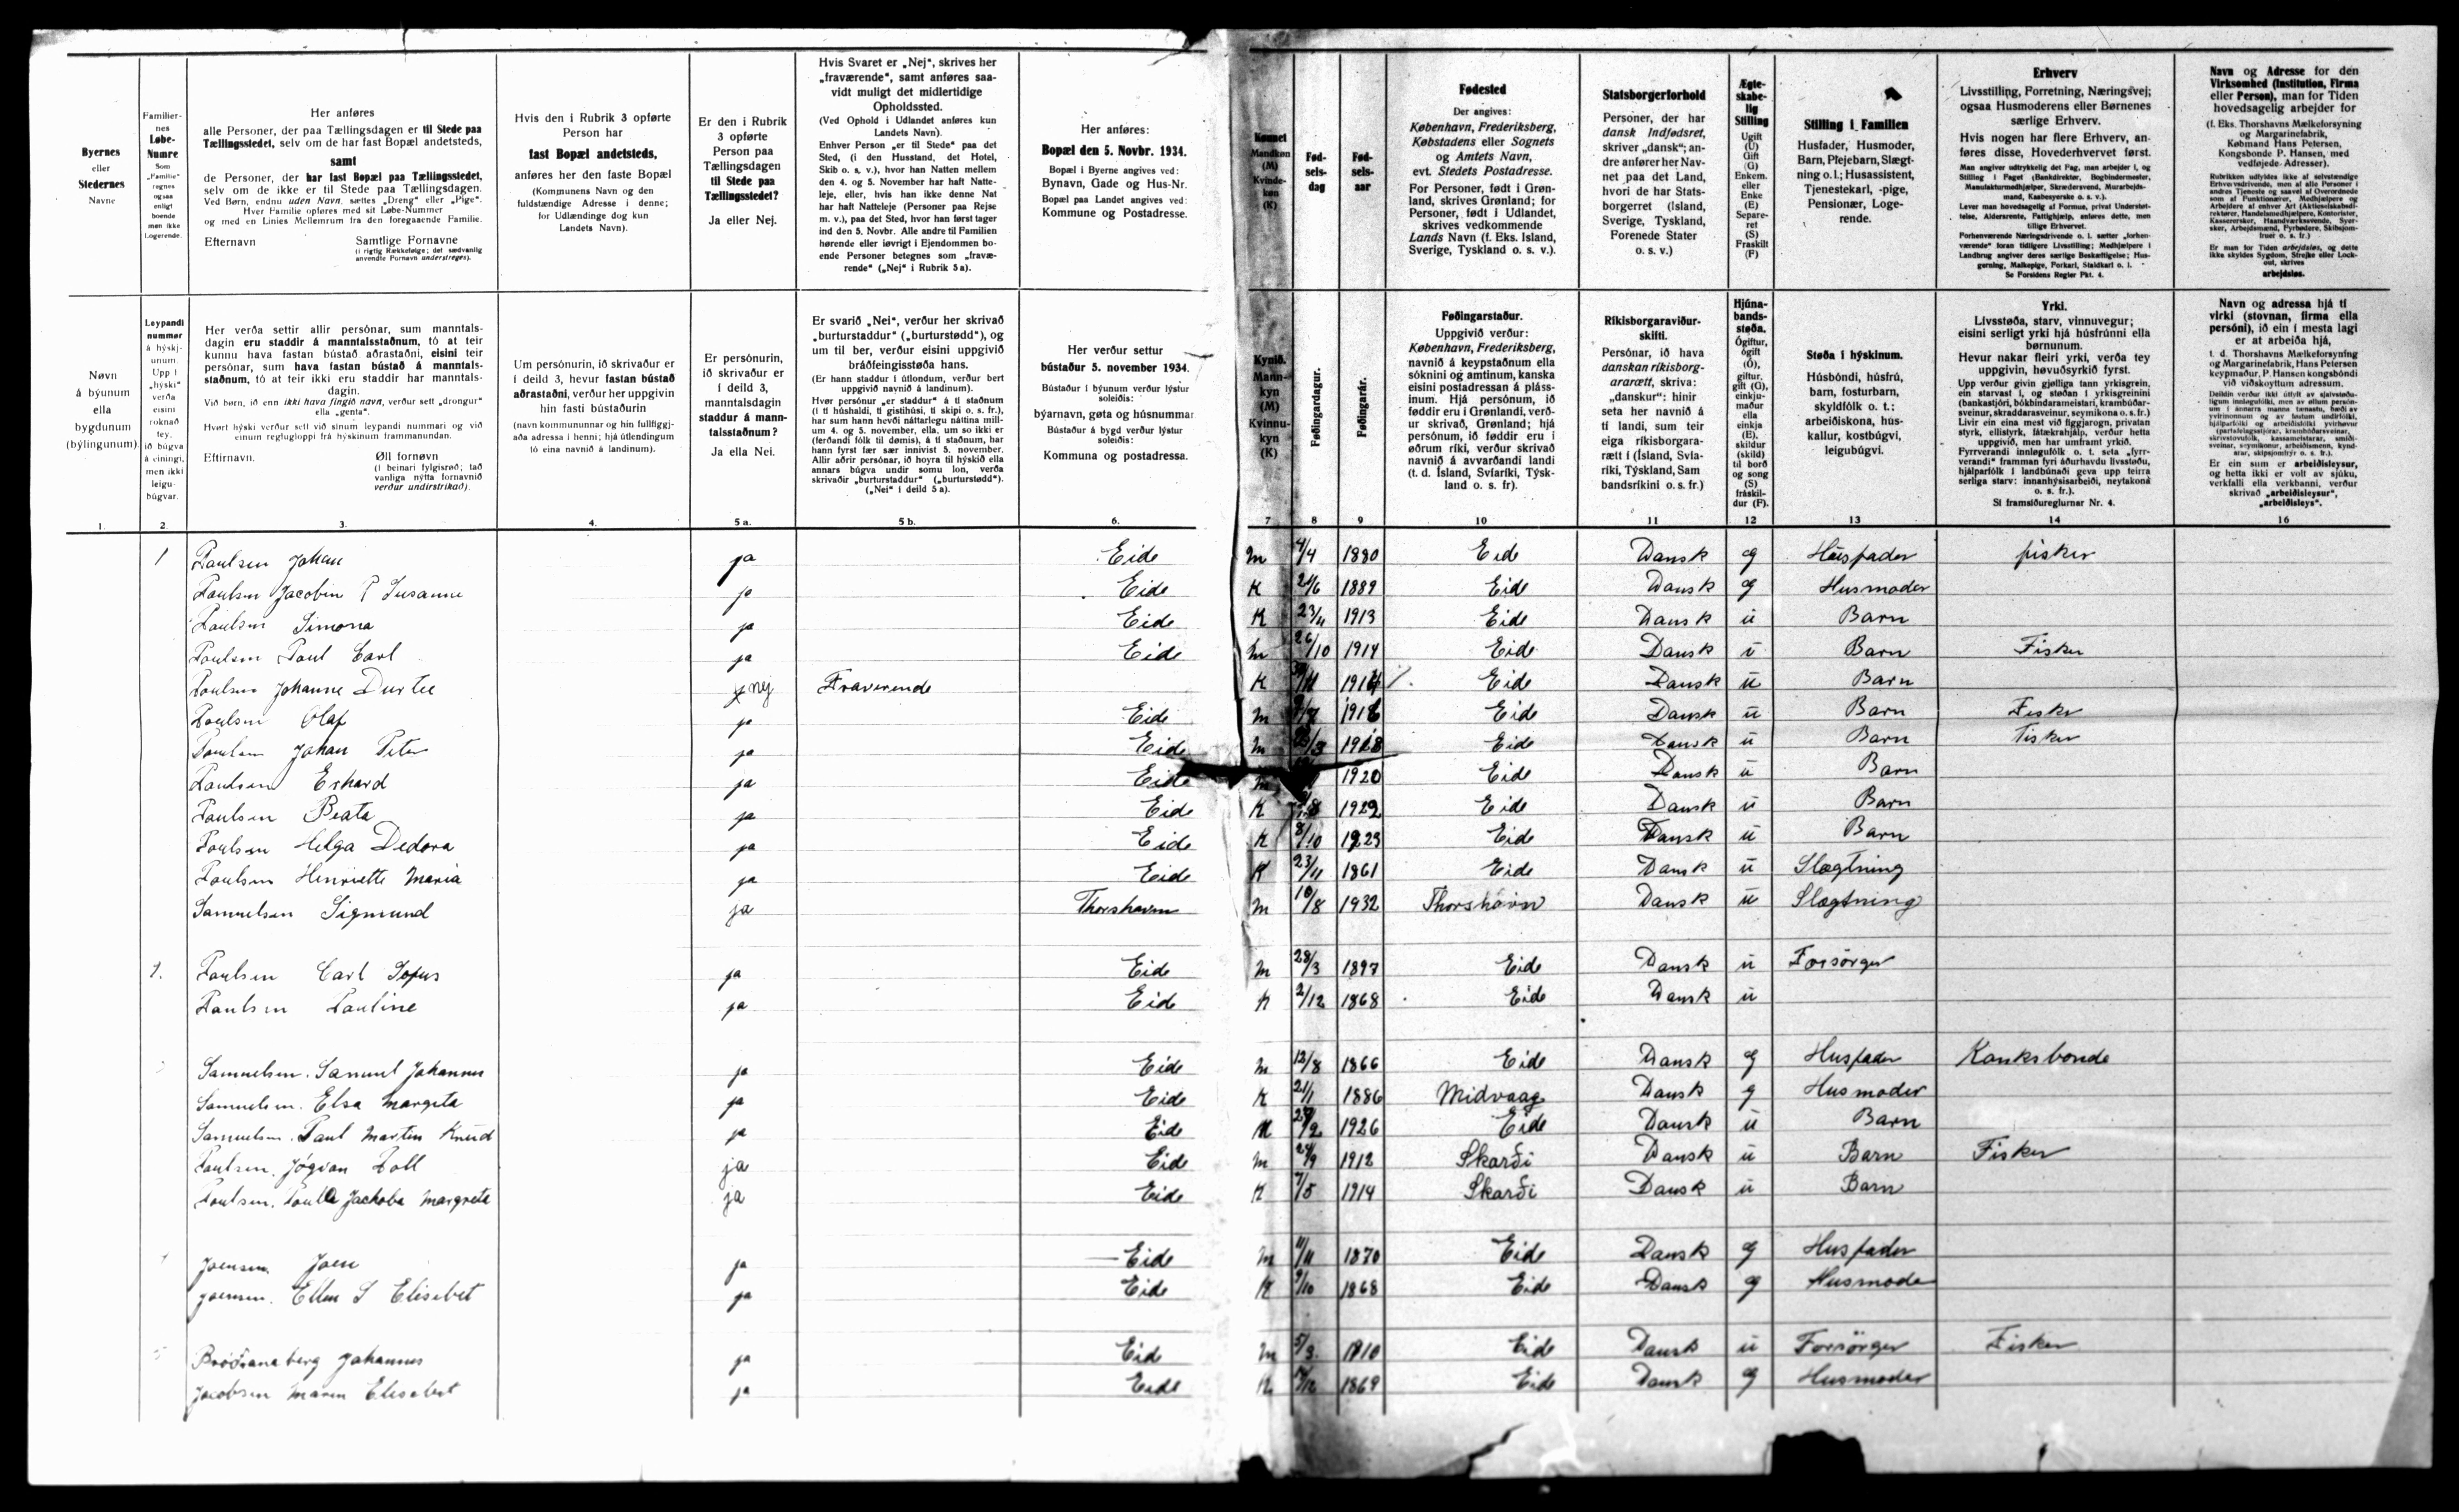 Byernes
eller
Stedernes
Navne
Familier-
nes
Løbe-
Numre
Som
„Familie“
regnes
ogsaa
enligt
boende
men ikke
Logerende.
Her anføres
alle Personer, der paa Tællingsdagen er til Stede paa
Tællingsstedet, selv om de har fast Bopæl andetsteds,
samt
de Personer, der har fast Bopæl paa Tællingsstedet,
selv om de ikke er til Stede paa Tællingsdagen.
Ved Børn, endnu uden Navn, sættes „Dreng“ eller „Pige“.
Hver Familie opføres med sit Løbe-Nummer
og med en Linies Mellemrum fra den foregaaende Familie.
Efternavn Samtlige Fornavne
(i rigtig Rækkefølge; det sædvanlig
anvendte Fornavn understreges).
Hvis den i Rubrik 3 opførte
Person har
fast Bopæl andetsteds,
anføres her den faste Bopæl
(Kommunens Navn og den
fuldstændige Adresse i denne;
for Udlændinge dog kun
Landets Navn).
Er den i Rubrik
3 opførte
Person paa
Tællingsdagen
til Stede paa
Tællingsstedet?
Ja eller Nej.
Hvis Svaret er „Nej“, skrives her
„fraværende“, samt anføres saa-
vidt muligt det midlertidige
Opholdssted.
(Ved Ophold i Udlandet anføres kun
Landets Navn).
Enhver Person „er til Stede“ paa det
Sted, (i den Husstand, det Hotel,
Skib o. s. v.), hvor han Natten mellem
den 4. og 5. November har haft Natte-
leje, eller, hvis han ikke denne Nat
har haft Natteleje (Personer paa Rejse
m. v.), paa det Sted, hvor han først tager
ind den 5. Novbr. Alle andre til Familien
hørende eller iøvrigt i Ejendommen bo-
ende Personer betegnes som „fravæ-
rende“ („Nej“ i Rubrik 5 a).
Her anføres:
Bopæl den 5. Novbr. 1934.
Bopæl i Byerne angives ved:
Bynavn, Gade og Hus-Nr.
Bopæl paa Landet angives ved:
Kommune og Postadresse.
Kønnet
Mandkøn
(M)
Kvinde-
køn
(K)
Fød-
sels-
dag
Fød-
sels-
aar
Fødested
Der angives:
København, Frederiksberg,
Købstadens eller Sognets
og Amtets Navn,
evt. Stedets Postadresse.
For Personer, født i Grøn-
land, skrives Grønland; for
Personer, født i Udlandet,
skrives vedkommende
Lands Navn (f. Eks. Island,
Sverige, Tyskland o. s. v.).
Statsborgerforhold
Personer, der har
dansk Indfødsret,
skriver „dansk“; an-
dre anfører her Nav-
net paa det Land,
hvori de har Stats-
borgerret (Island,
Sverige, Tyskland,
Forenede Stater
o. s. v.)
Ægte-
skabe-
lig
Stilling
Ugift
(U)
Gift
(G)
Enkem.
eller
Enke
(E)
Separe-
ret
(S)
Fraskilt
(F)
Stilling i Familien
Husfader, Husmoder,
Barn, Plejebarn, Slægt-
ning o. l.; Husassistent,
Tjenestekarl, -pige,
Pensionær, Loge-
rende.
Erhverv
Livsstilling, Forretning, Næringsvej;
ogsaa Husmoderens eller Børnenes
særlige Erhverv.
Hvis nogen har flere Erhverv, an-
føres disse, Hovederhvervet først.
Man angiver udtrykkelig det Fag, man arbejder i, og
Stilling i Faget (Bankdirektør, Bogbindermester,
Manufakturmedhjælper, Skrædersvend, Murarbejds-
mand, Kaabesyerske o. s. v.).
Lever man hovedsagelig af Formue, privat Understøt-
telse, Aldersrente, Fattighjælp, anføres dette, men
tillige Erhvervet.
Forhenværende Næringsdrivende o. l. sætter „forhen-
værende“ foran tidligere Livsstilling; Medhjælpere i
Landbrug angiver deres særlige Beskæftigelse; Hus-
gerning, Malkepige, Forkarl, Staldkarl o. l.
Se Forsidens Regler Pkt. 4.
Navn og Adresse for den
Virksomhed (Institution, Firma
eller Person), man for Tiden
hovedsagelig arbejder for
(f. Eks. Thorshavns Mælkeforsyning
og Margarinefabrik,
Købmand Hans Petersen,
Kongsbonde P. Hansen, med
vedføjede Adresser).
Er man for Tiden arbejdsløs, og dette
ikke skyldes Sygdom, Strejke eller Lock-
out, skrives
arbejdsløs.
Nøvn
á býunum
ella
bygdunum
(býlingunum).
Leypandi
nummør
á hýskj-
unum.
Upp í
„hýski“
verða
eisini
roknað
tey,
ið búgva
á einingi,
men ikki
leigu-
búgvar.
Her verða settir allir persónar, sum manntals-
dagin eru staddir á manntalsstaðnum, tó at teir
kunnu hava fastan bústað aðrastaðni, eisini teir
persónar, sum hava fastan bústað á manntals-
staðnum, tó at teir ikki eru staddir har manntals-
dagin.
Við børn, ið enn ikki hava fingið navn, verður sett „drongur“
ella „genta“.
Hvørt hýski verður sett við sínum leypandi nummari og við
einum reglugloppi frá hýskinum frammanundan.
Eftirnavn. Øll fornøvn
(í beinari fylgisrøð; tað
vanliga nýtta fornavnið
verður undirstrikað).
Um persónurin, ið skrivaður er
í deild 3, hevur fastan bústað
aðrastaðni, verður her uppgivin
hin fasti bústaðurin
(navn kommununnar og hin fullfíggj-
aða adressa í henni; hjá útlendingum
tó eina navnið á landinum).
Er persónurin,
ið skrivaður er
í deild 3,
manntalsdagin
staddur á mann-
talsstaðnum?
Ja ella Nei.
Er svarið „Nei“, verður her skrivað
„burturstaddur“ („burturstødd“), og
um til ber, verður eisini uppgivið
bráðfeingisstøða hans.
(Er hann staddur í útlondum, verður bert
uppgivið navnið á landinum).
Her verður settur
bústaður 5. november 1934.
Bústaður í býunum verður lýstur
soleiðis:
býarnavn, gøta og húsnummar
Bústaður á bygd verður lýstur
soleiðis:
Kommuna og postadressa.
Kynið.
Mann-
kyn
(M)
Kvinnu-
kyn
(K)
Føðingardagur.
Føðingarár.
Føðingarstaður.
Uppgivið verður:
København, Frederiksberg,
navnið á keypstaðnum ella
sóknini og amtinum, kanska
eisini postadressan á pláss-
inum. Hjá persónum, ið
føddir eru í Grønlandi, verð-
ur skrivað, Grønland; hjá
persónum, ið føddir eru í
øðrum ríki, verður skrivað
navnið á avvarðandi landi
(t. d. Ísland, Svíaríki, Týsk-
land o. s. fr).
Ríkisborgaraviður-
skifti.
Persónar, ið hava
danskan ríkisborg-
ararætt, skriva:
„danskur“: hinir
seta her navnið á
tí landi, sum teir
eiga ríkisborgara-
rætt í (Ísland, Svía-
ríki, Týskland, Sam
bandsríkini o. s. fr.)
Hjúna-
bands-
støða.
Ógiftur,
ógift
(Ó),
giftur,
gift (G),
einkju-
maður
ella
einkja
(E),
skildur
(skild)
til borð
og song
(S)
fráskil-
dur (F).
Støða í hýskinum.
Húsbóndi, húsfrú,
barn, fosturbarn,
skyldfólk o. t.:
arbeiðiskona, hús-
kallur, kostbúgvi,
leigubúgvi.
Yrki.
Livsstøða, starv, vinnuvegur;
eisini serligt yrki hjá húsfrúnni ella
børnunum.
Hevur nakar fleiri yrki, verða tey
uppgivin, høvuðsyrkið fyrst.
Sí framsíðureglurnar Nr. 4.
Navn og adressa hjá tí
virki (stovnan, firma ella
persóni), ið ein í mesta lagi
er at arbeiða hjá,
Er ein sum er arbeiðsleysur,
og hetta ikki er volt av sjúku,
verkfalli ella verkbanni, verður
skrivað „arbeiðsleysur“,
„arbeiðisleys“.
1. 2. 3. 4. 5 a. 5 b. 6. 7 8 9 10 11 12 13 14 16
1 Poulsen Johan ja Eide M 4/4 1880 Eide Dansk g Husfader fisker
Poulsen Jacobin P Susanne ja Eide K 21/6 1889 Eide Dansk g Husmoder
Poulsen Simona ja Eide K 23/11 1913 Eide Dansk u Barn
Poulsen Poul Carl ja Eide M 26/10 1914 Eide Dansk u Barn Fisker
Poulsen Johanne Durtee nej Fraverende K Eide Dansk u Barn
Poulsen Olaf ja Eide M 1916 Eide Dansk u Barn Fisker
Poulsen Johan Peter ja Eide M 1918 Eide Dansk u Barn Fisker
Poulsen Erhard ja Eide M 1920 Eide Dansk u Barn
Poulsen Beata ja Eide K 1922 Eide Dansk u Barn
Poulsen Helga Dedora ja Eide K 8/10 1923 Eide Dansk u Barn
Poulsen Henriette Maria ja Eide K 23/11 1861 Eide Dansk u Slægtning
Samuelsen Sigmund ja Thorshavn M 10/8 1932 Thorshavn Dansk u Slægtning
Poulsen Carl Sofus ja Eide M 28/3 1897 Eide Dansk u Forsörger
Poulsen Pauline ja Eide K 2/12 1868 Eide Dansk u
Samuelsen. Samuel Johannes ja Eide M 12/8 1866 Eide Dansk g Husfader
Samuelsen. Elsa Margreta ja Eide K 21/1 1886 Midvaag Dansk g Husmoder
Samuelsen. Paul Martin Knud ja Eide M 1926 Eide Dansk u Barn
Poulsen. Jógvan Poll ja Eide M 24/9 1912 Skarði Dansk u Barn Fisker
Poulsen. Poula Jachoba Margreta ja Eide K 7/5 1914 Skarði Dansk u Barn
Joensen. Joen ja Eide M 11/11 1870 Eide Dansk g Husfader
Joensen. Ellen S Elisebet ja Eide K 9/10 1868 Eide Dansk g Husmode
Johannes ja Eide M 5/3 1910 Eide Dansk u Forsörger Fisker
Jacobsen Maren Elisebet ja Eide K 1869 Eide Dansk g Husmoder